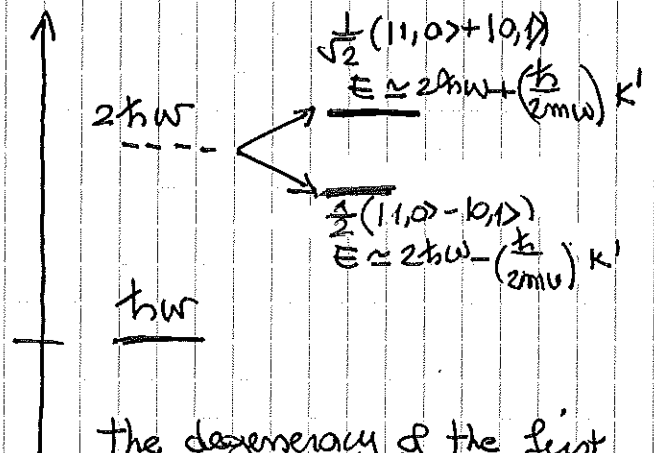 1/√2 (|1,0> + |0,1>)
E ≃ 2ħω + (ħ/2mω) K'
2ħω
1/2 (|1,0> - |0,1>)
E ≃ 2ħω - (ħ/2mω) K'
ħω
the degeneracy of the first